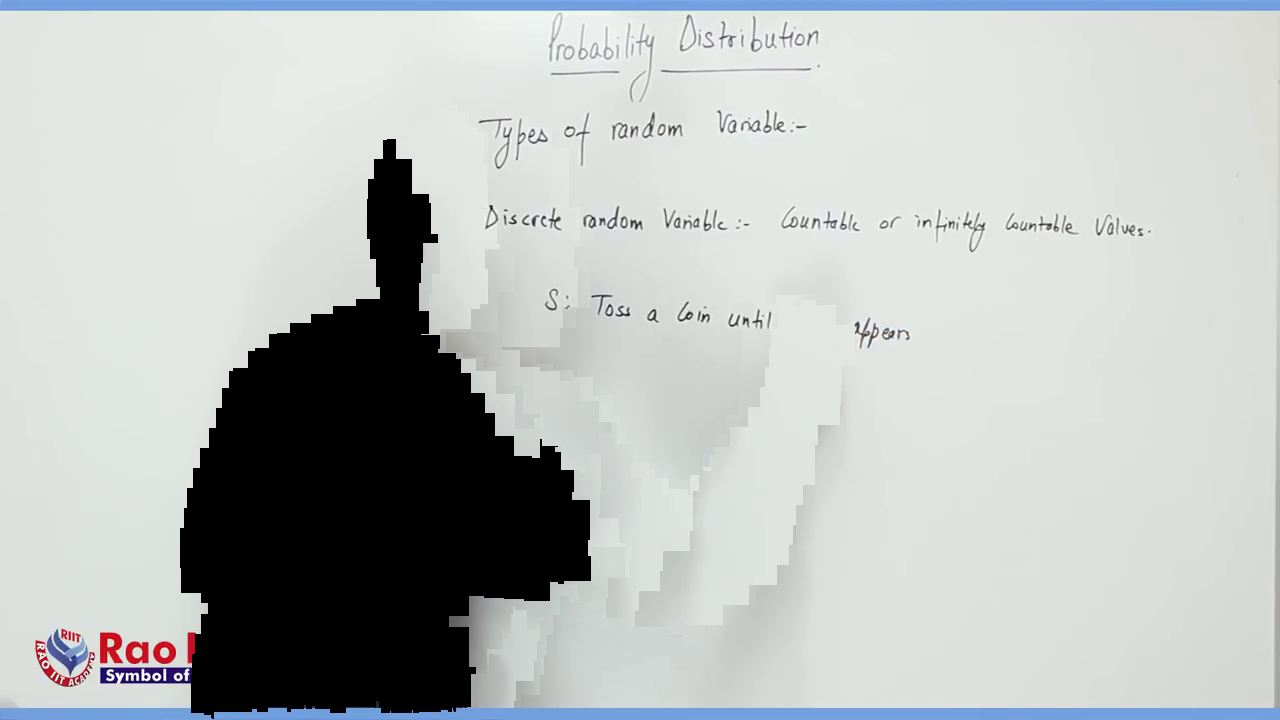 Probability Distribution
Types of random Variable:-
Discrete random Variable:- Countable or infinitely Countable Values.
S: Toss a Coin until appears
RIIT
RAO IIT ACADEMY
Rao
Symbol of